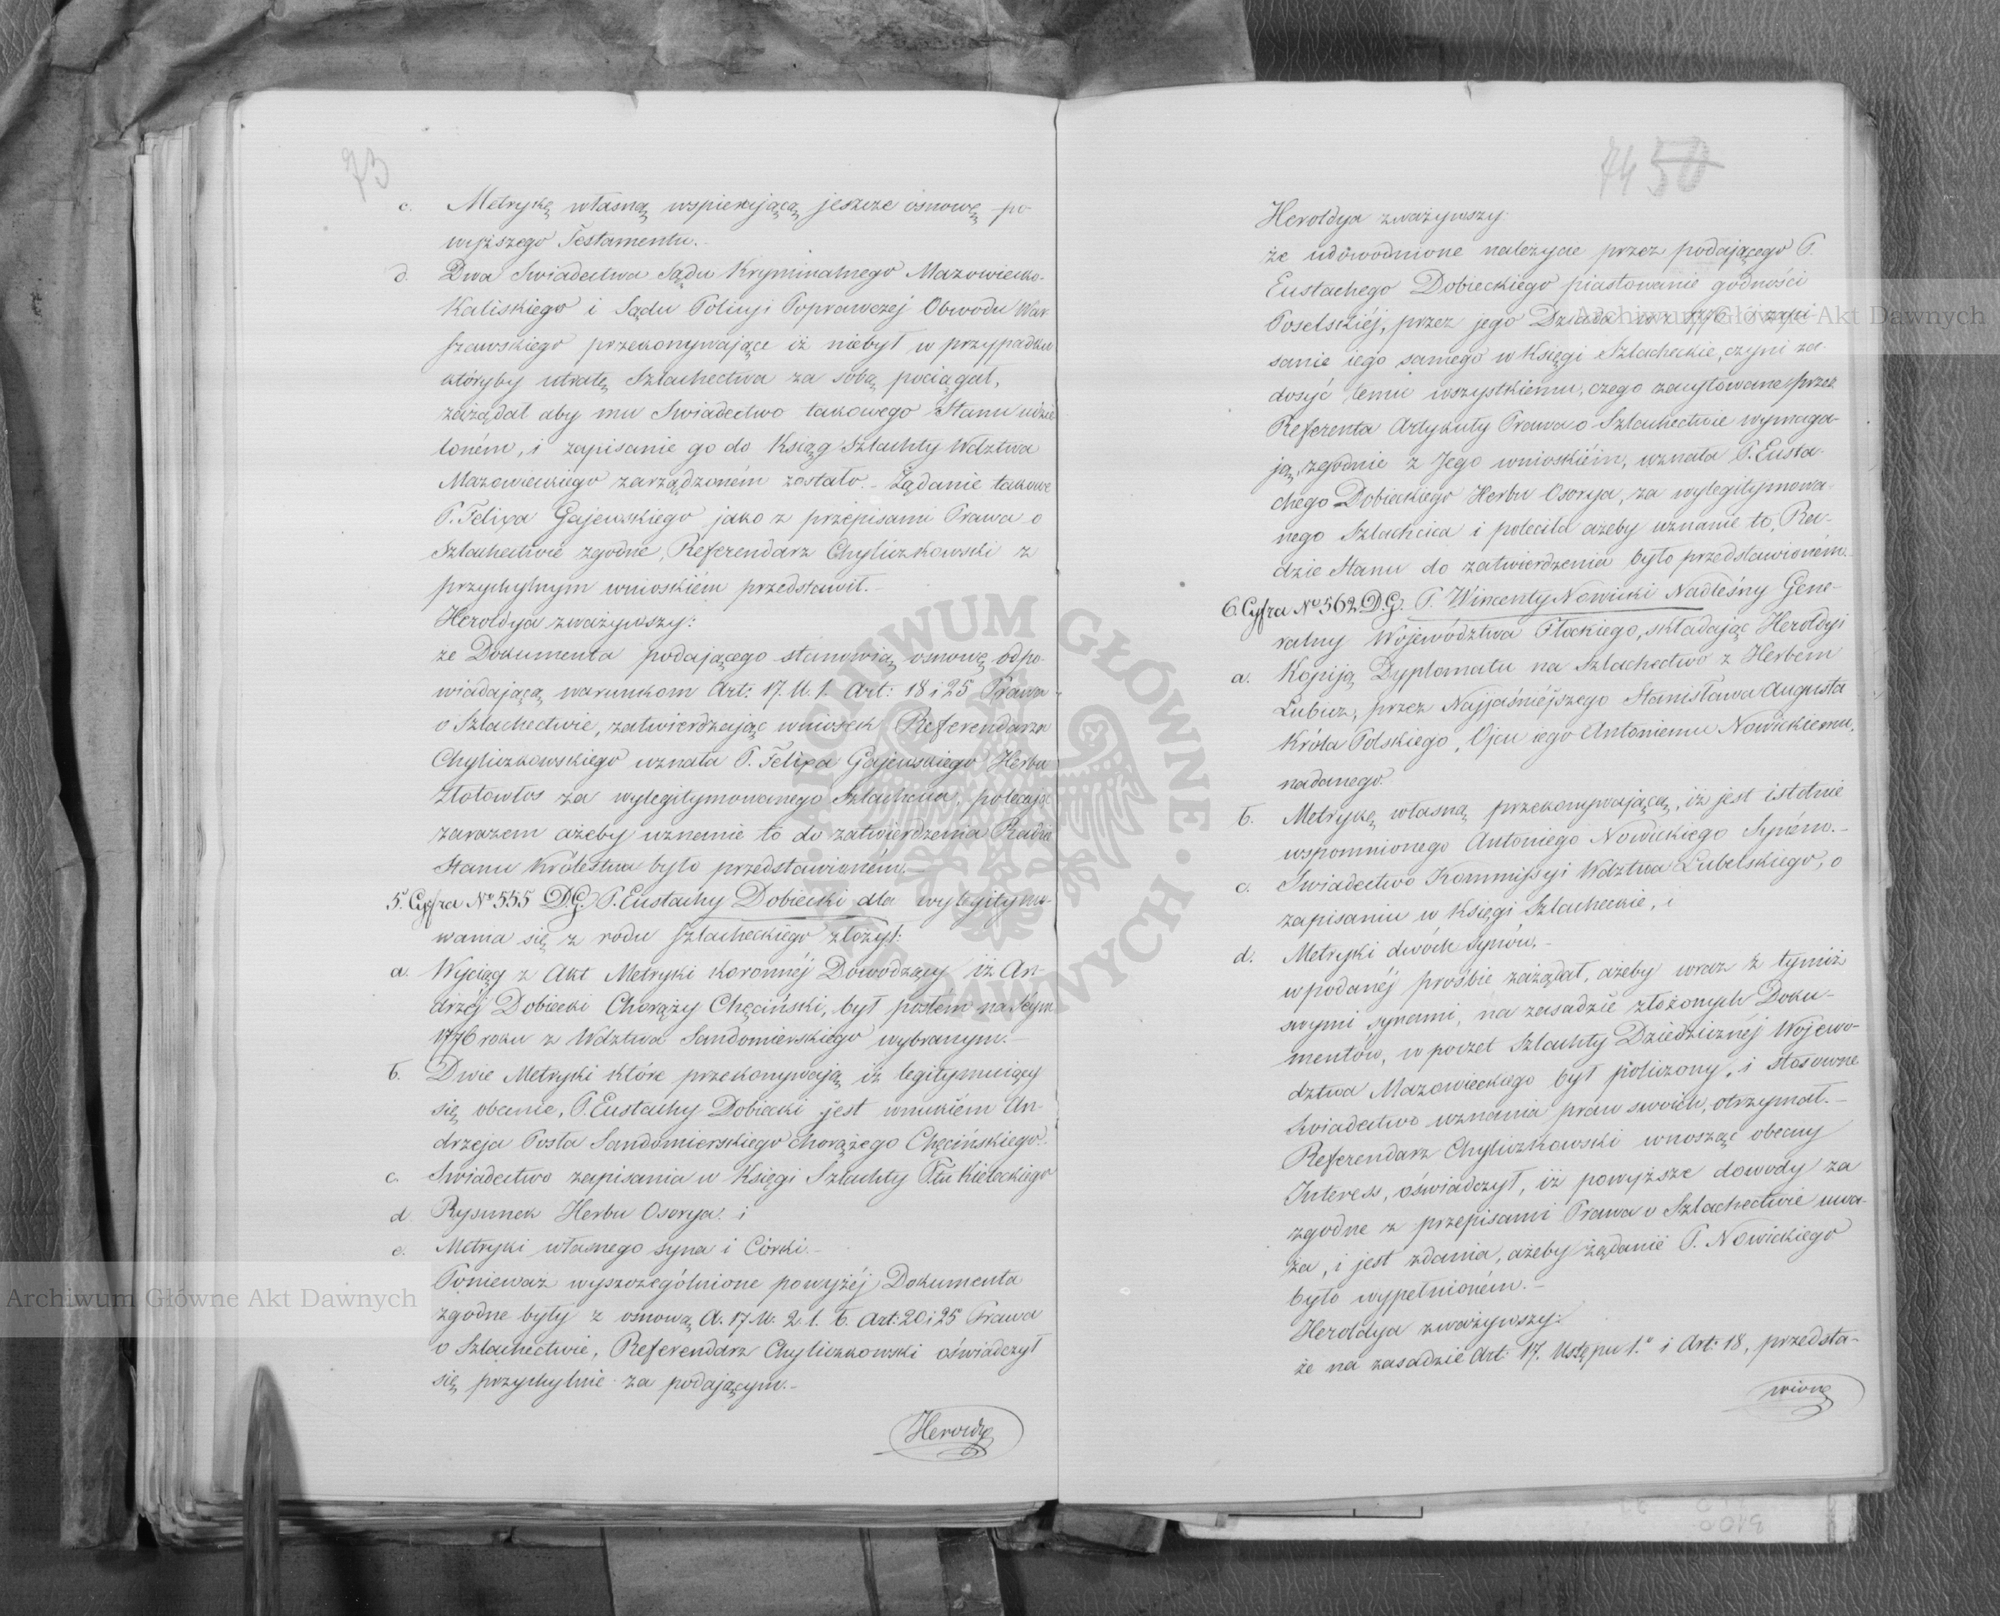 73
c. Metrykę własną wspierającą jeszcze osnowę po-
wyższego Testamentu.-
d. Dwa Swiadectwa Sądu Kryminalnego Mazowiecko-
Kaliskiego i Sądu Policyi Poprawczej Obwodu War-
szawskiego przekonywające iż niebył w przypadku
któryby utratę Szlachectwa za sobą pociągał,
zażądał aby mu Swiadectwo takowego Stanu udzie
loném, i zapisanie go do Ksiąg Szlachty Wdztwa
Mazowieckiego zarządzoném zostało.- Żądanie takowe
P. Felixa Gajewskiego jako z przepisami Prawa o
Szlachectwie zgodne, Referendarz Chyliczkowski z
przychylnym wnioskiém przedstawił.-
Heroldya zważywszy:
że Dokumenta podającego stanowią osnowę odpo-
wiadającą warunkom Art: 17. U. 1. Art: 18 i 25 Prawa
o Szlachectwie, zatwierdzając wniosek Referendarza
Chyliczkowskiego uznała P. Felixa Gajewskiego Herbu
Złotowłos za wylegitymowanego Szlachcica, polecając
zarazem ażeby uznanie to do zatwierdzenia Radzie
Stanu Królestwa było przedstawioném.-
5. Cyfra No 555 D.G. P. Eustachy Dobiecki dla wylegitymo-
wania się z rodu szlacheckiego złożył:
a. Wyciąg z Akt Metryki koronnéj Dowodzący iż An-
drzéj Dobiecki Chorąży Chęciński, był posłem na Sejm
1776 roku z Wdztwa Sandomierskiego wybranym.-
b. Dwie Metryki które przekonywają iż legitymuiący
się obecnie, P. Eustachy Dobiecki jest wnukiém An-
drzeja Posła Sandomierskiego chorążego Chęcińskiego.
c. Swiadectwo zapisania w Księgi Szlachty Ptu Kieleckiego
d. Rysunek Herbu Osorya. i
e. Metryki własnego syna i Córki.-
Ponieważ wyszczególnione powyżéj Dokumenta
zgodne były z osnową A. 17 U. 2 l. b. Art: 20 i 25 Prawa
o Szlachectwie, Referendarz Chyliczkowski oświadczył
się przychylnie za podającym.-
Heroldya
74 50
Heroldya zważywszy:
że udowodnione należycie przez podającego P.
Eustachego Dobieckiego piastowanie godności
Poselskiéj, przez jego Dziada w r. 1776 i zapi
sanie iego samego w Księgi Szlacheckie, czyni za-
dosyć temu wszystkiemu, czego zacytowane przez
Referenta Artykuły Prawa o Szlachectwie wymaga-
ją, zgodnie z Jego wnioskiém, uznała P. Eusta-
chego Dobieckiego Herbu Osorya, za wylegitymowa-
nego Szlachcica i poleciła ażeby uznanie to, Ra-
dzie Stanu do zatwierdzenia było przedstawioném.-
6. Cyfra No 562 D.G. P. Wincenty Nowicki Nadleśny Gene-
ralny Województwa Płockiego, składając Heroldyi
a. Kopiją Dyplomatu na Szlachectwo z Herbem
Lubicz, przez Najjaśniejszego Stanisława Augusta
Króla Polskiego, Ojcu iego Antoniemu Nowickiemu,
nadanego.
b. Metrykę własną przekonywającą, iż jest istotnie
wspomnionego Antoniego Nowickiego Syném.-
c. Swiadectwo Kommissyi Wdztwa Lubelskiego, o
zapisaniu w Księgi Szlacheckie, i
d. Metryki dwóch synów.-
w podanéj prośbie zażądał, ażeby wraz z tymiż
swymi synami, na zasadzie złożonych Doku-
mentów, w poczet Szlachty Dziedzicznéj Wojewo-
dztwa Mazowieckiego był policzony, i stosowne
swiadectwo uznania praw swoich, otrzymał.-
Referendarz Chyliczkowski wnosząc obecny
Interess, oświadczył, iż powyższe dowody za
zgodne z przepisami Prawa o Szlachectwie uwa-
ża, i jest zdania, ażeby żądanie P. Nowickiego
było wypełnioném.-
Heroldya zważywszy:
że na zasadzie Art: 17. Ustępu 1.o i Art: 18, przedsta-
wione
Archiwum Główne Akt Dawnych
Archiwum Główne Akt Dawnych
ARCHIWUM GŁÓWNE AKT DAWNYCH